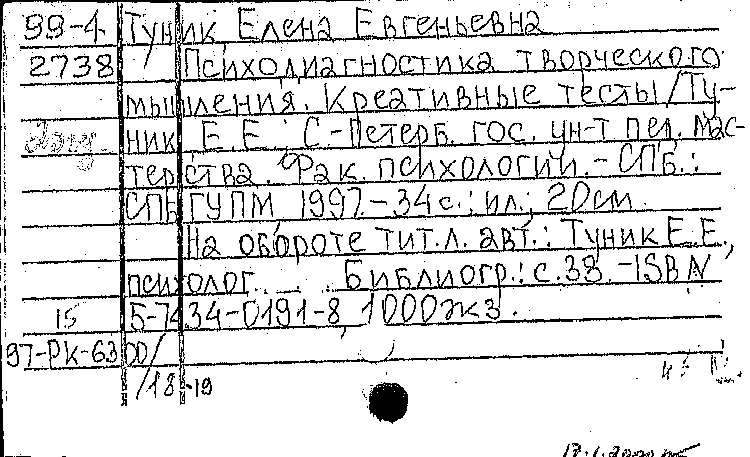 99-4 Туник Елена Евгеньевна
2738 Психодиагностика творческого
мышления. Креативные тесты / Ту-
ник Е. Е.; С.-Петерб. гос. ун-т пед. мас-
терства. Фак. психологии. - СПб.:
СПбГУПМ, 1997. - 34 с.: ил.; 20 см.
На обороте тит. л. авт.: Туник Е. Е.,
психолог. Библиогр.: с. 38. - ISBN
15 5-7434-0191-8, 1000 экз.
97-РК-6300/
/18-19